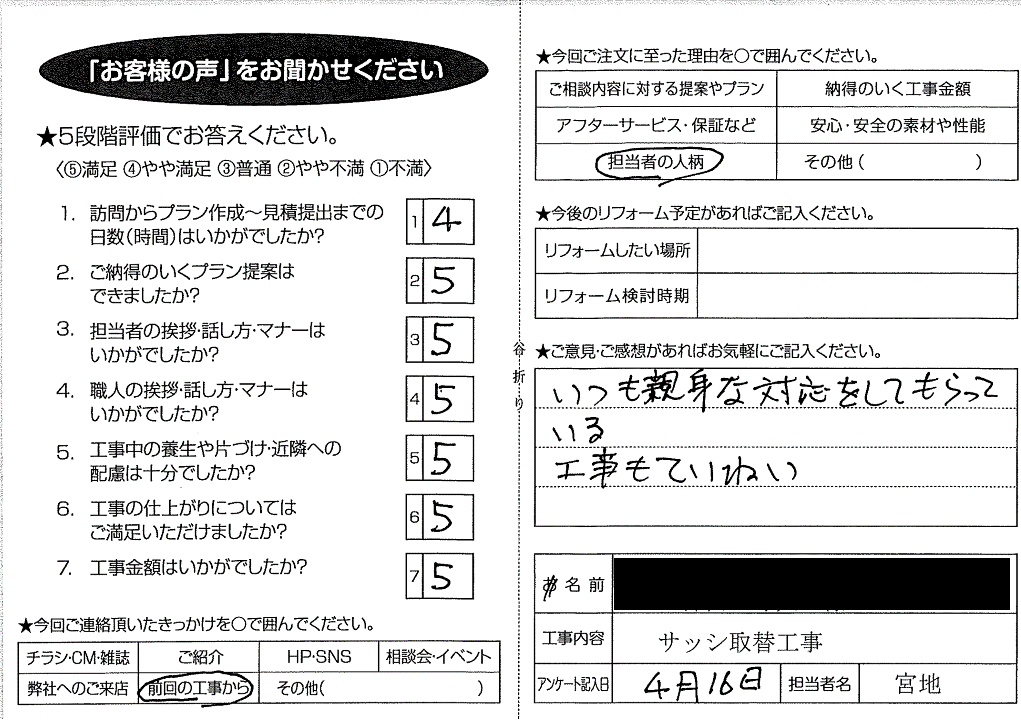 「お客様の声」をお聞かせください
★5段階評価でお答えください。
〈⑤満足 ④やや満足 ③普通 ②やや不満 ①不満〉
1. 訪問からプラン作成～見積提出までの
日数(時間)はいかがでしたか?
1 4
2. ご納得のいくプラン提案は
できましたか?
2 5
3. 担当者の挨拶・話し方・マナーは
いかがでしたか?
3 5
4. 職人の挨拶・話し方・マナーは
いかがでしたか?
4 5
5. 工事中の養生や片づけ・近隣への
配慮は十分でしたか?
5 5
6. 工事の仕上がりについては
ご満足いただけましたか?
6 5
7. 工事金額はいかがでしたか?
7 5
★今回ご連絡頂いたきっかけを〇で囲んでください。
チラシ・CM・雑誌 ご紹介 HP・SNS 相談会・イベント
弊社へのご来店 前回の工事から その他( )
谷折り
★今回ご注文に至った理由を〇で囲んでください。
ご相談内容に対する提案やプラン 納得のいく工事金額
アフターサービス・保証など 安心・安全の素材や性能
担当者の人柄 その他( )
★今後のリフォーム予定があればご記入ください。
リフォームしたい場所
リフォーム検討時期
★ご意見・ご感想があればお気軽にご記入ください。
いつも親身な対応をしてもらって
いる
工事もていねい
お名前
工事内容 サッシ取替工事
アンケート記入日 4月16日 担当者名 宮地